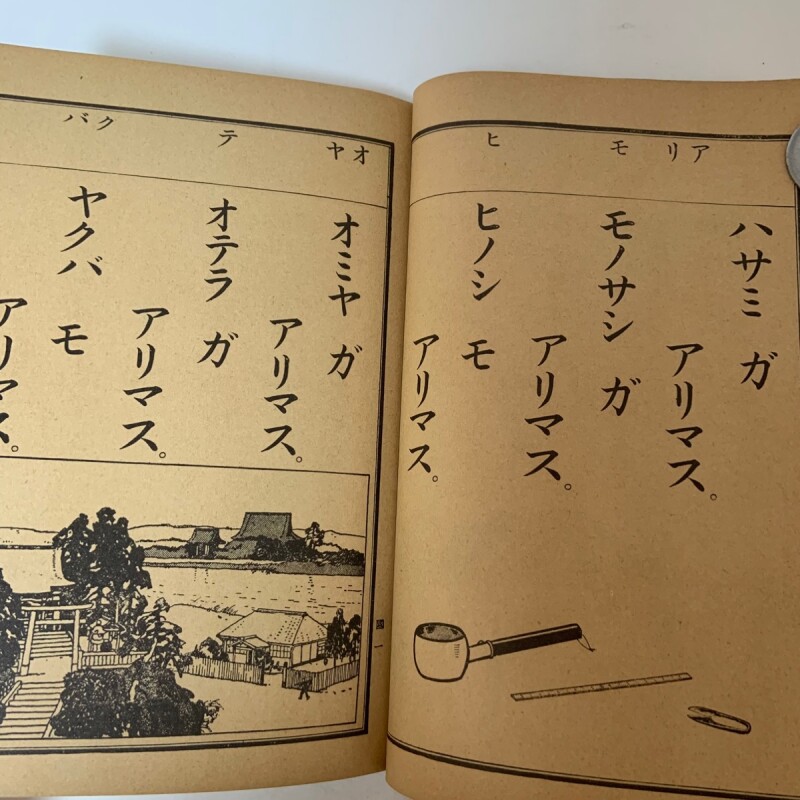 アリ
モ
ヒ
ハサミ ガ
アリマス。
モノサシ ガ
アリマス。
ヒノシ モ
アリマス。
オヤ
テ
クバ
オミヤ ガ
アリマス。
オテラ ガ
アリマス。
ヤクバ モ
アリマス。